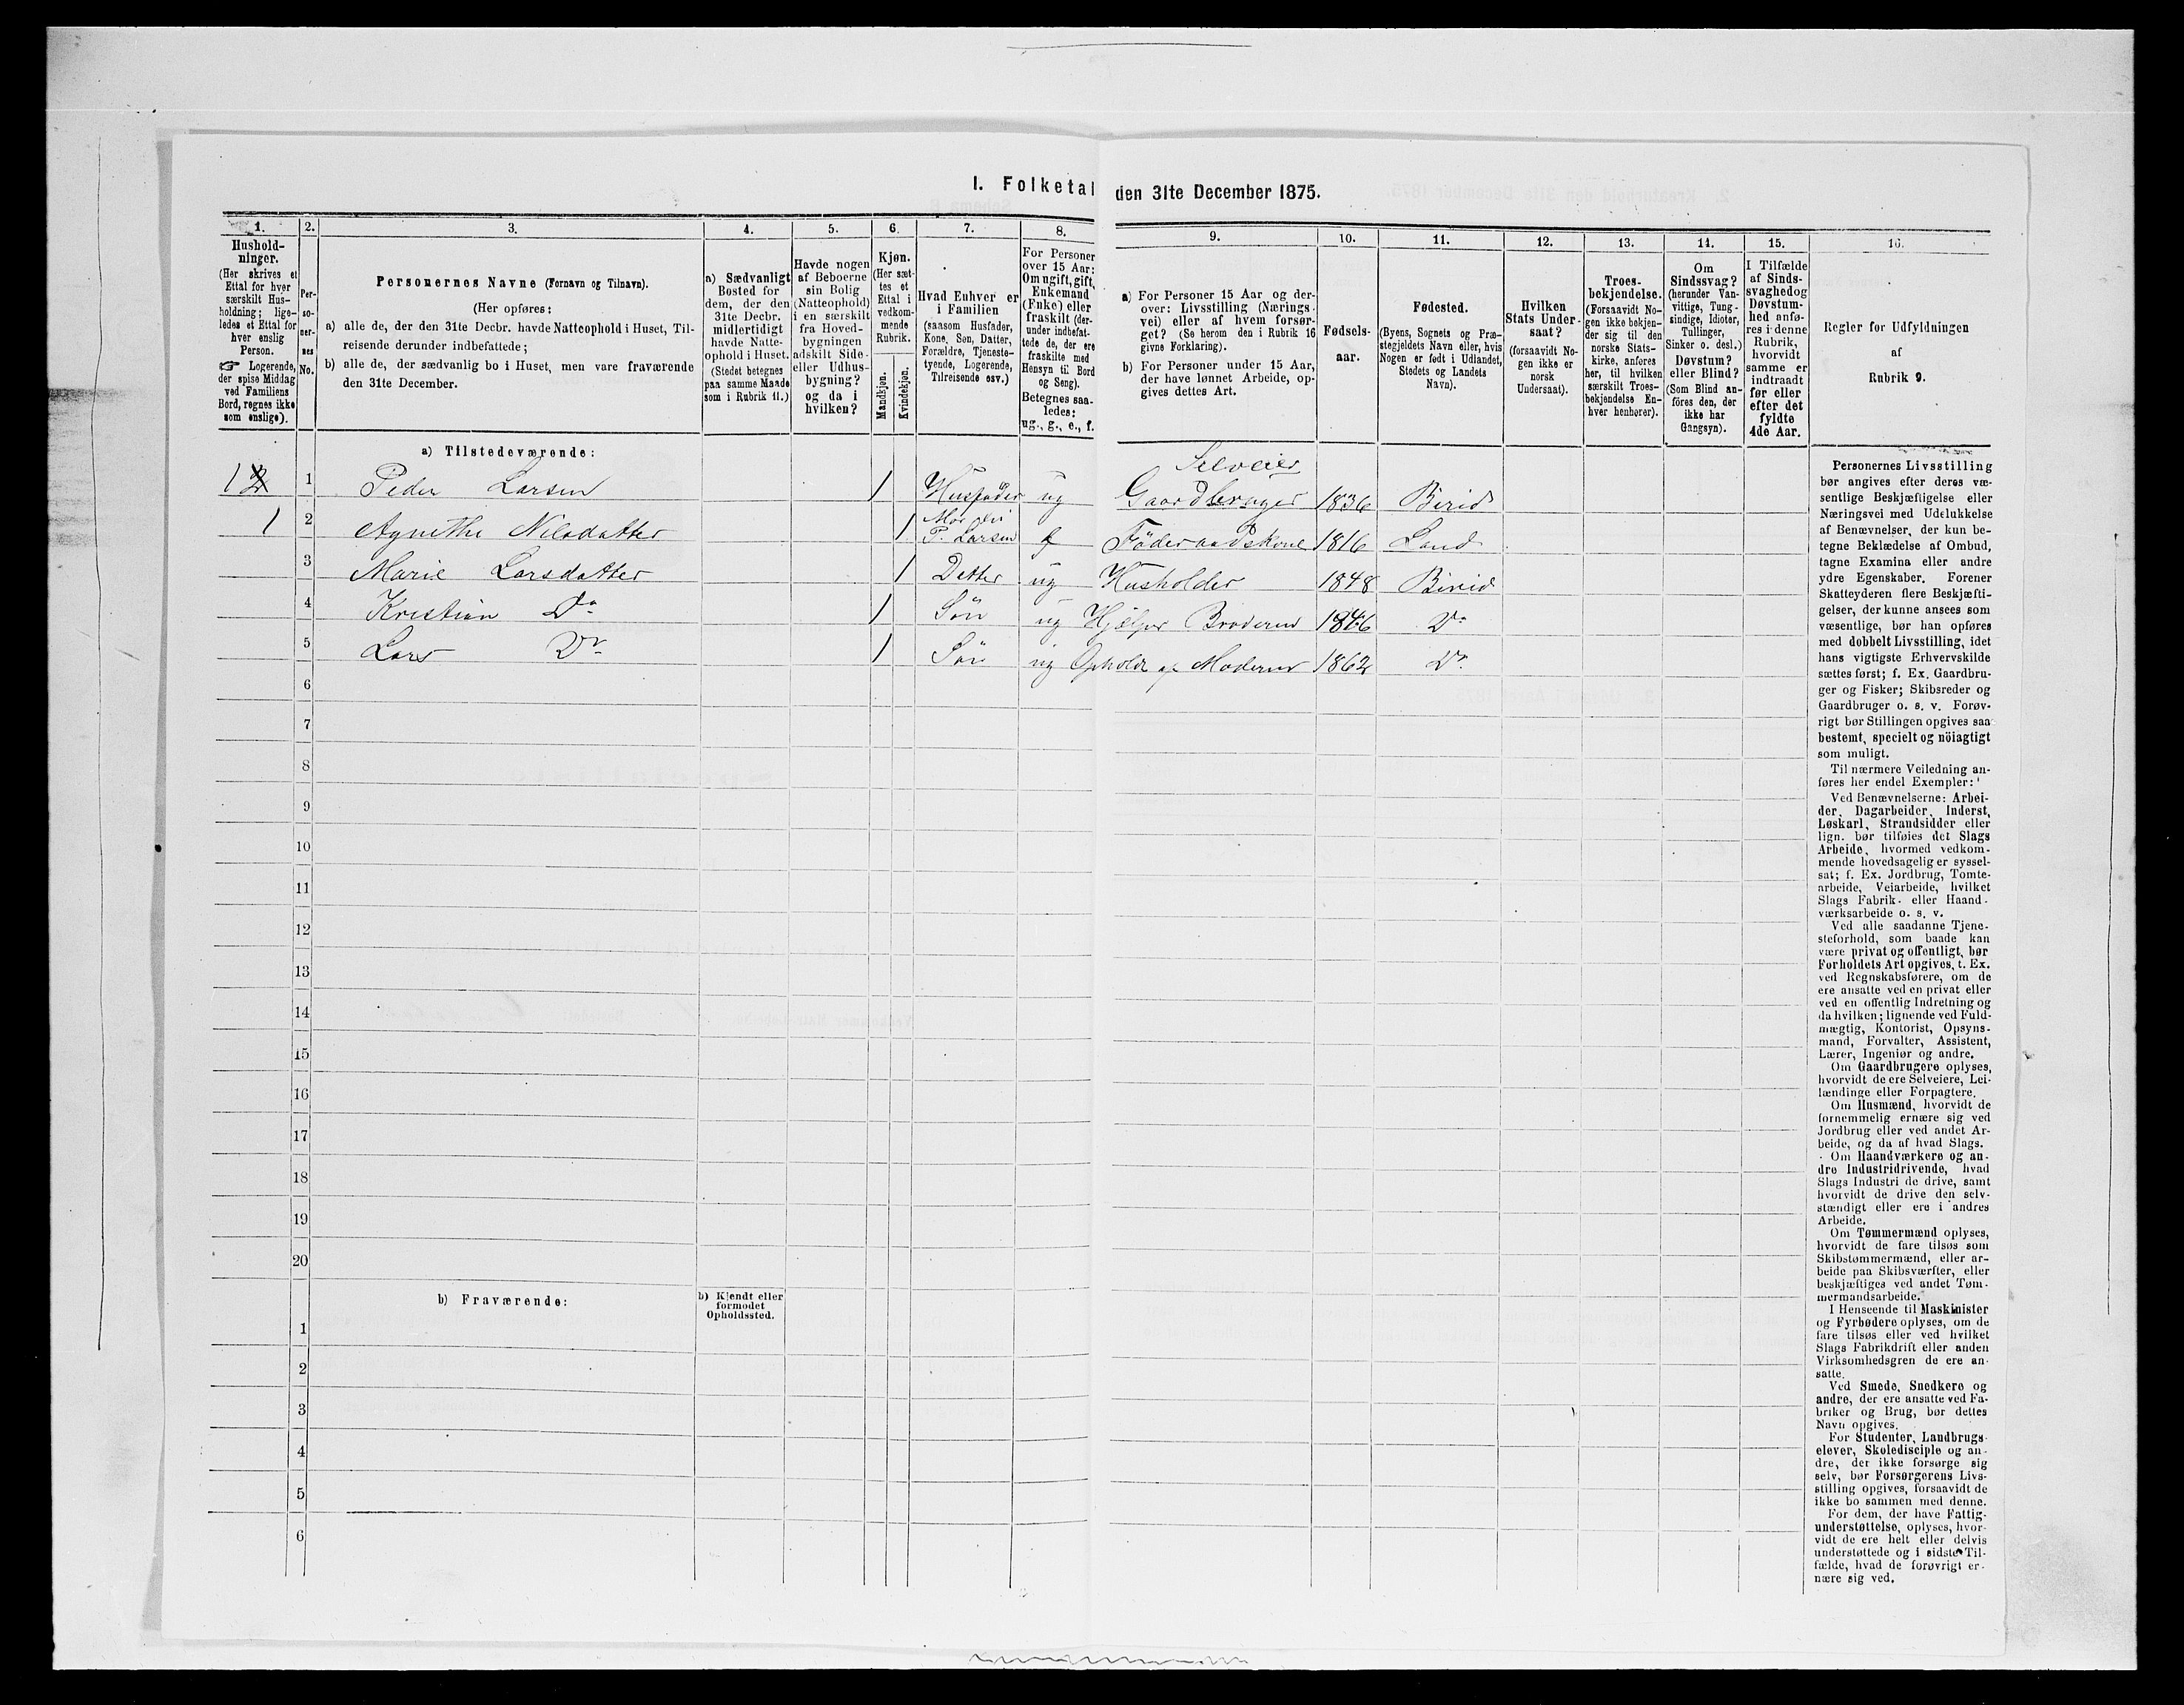 I. Folketal den 31te December 1875.
1. 2. 3. 4. 5. 6. 7. 8. 9. 10. 11. 12. 13. 14. 15. 16.
Hushold-
ninger.
(Her skrives et
Ettal for hver
særskilt Hus-
holdning; lige-
ledes et Ettal for
hver enslig
Person.
☞ Logerende,
der spise Middag
ved Familiens
Bord, regnes ikke
som enslige).
Per-
so-
ner-
nes
No.
Personernes Navne (Fornavn og Tilnavn).
(Her opføres:
a) alle de, der den 31te Decbr. havde Natteophold i Huset, Til-
reisende derunder indbefattede;
b) alle de, der sædvanlig bo i Huset, men vare fraværende
den 31te December.
a) Sædvanligt
Bosted for
dem, der den
31te Decbr.
midlertidigt
havde Natte-
ophold i Huset.
(Stedet betegnes
paa samme Maade
som i Rubrik 11.)
Havde nogen
af Beboerne
sin Bolig
(Natteophold)
i en særskilt
fra Hoved-
bygningen
adskilt Side-
eller Udhus-
bygning?
og da i
hvilken?
Kjøn.
(Her sæt-
tes et
Ettal i
vedkom-
mende
Rubrik.
Mandkjøn.
Kvindekjøn.
Hvad Enhver er
i Familien
(saasom Husfader,
Kone, Søn, Datter,
Forældre, Tjeneste-
tyende, Logerende,
Tilreisende osv.)
For Personer
over 15 Aar:
Om ugift, gift,
Enkemand
(Enke) eller
fraskilt (der-
under indbefat-
tede de, der ere
fraskilte med
Hensyn til Bord
og Seng).
Betegnes saa-
ledes:
ug., g., e., f.
a) For Personer 15 Aar og der-
over: Livsstilling (Nærings-
vei) eller af hvem forsør-
get? (Se herom den i Rubrik 16
givne Forklaring).
b) For Personer under 15 Aar,
der have lønnet Arbeide, op-
gives dettes Art.
Fødsels-
aar.
Fødested.
(Byens, Sognets og Præ-
stegjeldets Navn eller, hvis
Nogen er født i Udlandet,
Stedets og Landets
Navn).
Hvilken
Stats Under-
saat?
(forsaavidt No-
gen ikke er
norsk
Undersaat).
Troes-
bekjendelse.
(Forsaavidt No-
gen ikke bekjen-
der sig til den
norske Stats-
kirke, anføres
her, til hvilken
særskilt Troes-
bekjendelse En-
hver henhører).
Om
Sindssvag?
(herunder Van-
vittige, Tung-
sindige, Idioter,
Tullinger,
Sinker o. desl.)
Døvstum?
eller Blind?
(Som Blind an-
föres den, der
ikke har
Gangsyn).
I Tilfælde
af Sinds-
svaghed og
Døvstum-
hed anfø-
res i denne
Rubrik,
hvorvidt
samme er
indtraadt
før eller
efter det
fyldte
4de Aar.
Regler for Udfyldningen
af
Rubrik 9.
a) Tilstedeværende:
Selveier
1 2 1 Peder Larsen 1 Husfader ug Gaardbruger 1836 Birid
1 2 Agnethe Nilsdatter 1 Mor til P. Larsen f Föderaadskone 1816 Land
3 Marie Larsdatter 1 Datter ug Husholder 1848 Birid
4 Kristian Do 1 Sön ug Hjælper Broderen 1846 Do
5 Lars Do 1 Sön ug Ophold af Moderen 1862 Do
6
7
8
9
10
11
12
13
14
15
16
17
18
19
20
b) Fraværende:
b) Kjendt eller
formodet
Opholdssted.
1
2
3
4
5
6
Personernes Livsstilling
bør angives efter deres væ-
sentlige Beskjæftigelse eller
Næringsvei med Udelukkelse
af Benævnelser, der kun be-
tegne Beklædelse af Ombud,
tagne Examina eller andre
ydre Egenskaber. Forener
Skatteyderen flere Beskjæfti-
gelser, der kunne ansees som
væsentlige, bør han opføres
med dobbelt Livsstilling, idet
hans vigtigste Erhvervskilde
sættes først; f. Ex. Gaardbru-
ger og Fisker; Skibsreder og
Gaardbruger o. s. v. Forøv-
rigt bør Stillingen opgives saa
bestemt, specielt og nöiagtigt
som muligt.
Til nærmere Veiledning an-
føres her endel Exempler:
Ved Benævnelserne: Arbei-
der, Dagarbeider, Inderst,
Løskarl, Strandsidder eller
lign. bør tilføies det Slags
Arbeide, hvormed vedkom-
mende hovedsagelig er syssel-
sat; f. Ex. Jordbrug, Tomte-
arbeide, Veiarbeide, hvilket
Slags Fabrik- eller Haand-
værksarbeide o. s. v.
Ved alle saadanne Tjene-
steforhold, som baade kan
være privat og offentligt, bør
Forholdets Art opgives, t. Ex.
ved Regnskabsførere, om de
ere ansatte ved en privat eller
ved en offentlig Indretning og
da hvilken; lignende ved Fuld-
mægtig, Kontorist, Opsyns-
mand, Forvalter, Assistent,
Lærer, Ingeniør og andre.
Om Gaardbrugere oplyses,
hvorvidt de ere Selveiere, Lei-
lændinge eller Forpagtere.
Om Husmænd, hvorvidt de
fornemmelig ernære sig ved
Jordbrug eller ved andet Ar-
beide, og da af hvad Slags.
Om Haandværkere og an-
dre Industridrivende, hvad
Slags Industri de drive, samt
hvorvidt de drive den selv-
stændigt eller ere i andres
Arbeide.
Om Tømmermænd oplyses,
hvorvidt de fare tilsøs som
Skibstømmermænd, eller ar-
beide paa Skibsværfter, eller
beskjæftiges ved andet Tøm-
mermandsarbeide.
I Henseende til Maskinister
og Fyrbødere oplyses, om de
fare tilsøs eller ved hvilket
Slags Fabrikdrift eller anden
Virksomhedsgren de ere an-
satte.
Ved Smede, Snedkere og
andre, der ere ansatte ved Fa-
briker og Brug, bør dettes
Navn opgives.
For Studenter, Landbrugs-
elever, Skoledisciple og an-
dre, der ikke forsørge sig
selv, bør Forsørgerens Livs-
stilling opgives, forsaavidt de
ikke bo sammen med denne.
For dem, der have Fattig-
understøttelse, oplyses, hvor-
vidt de ere helt eller delvis
understøttede og i sidste Til-
fælde, hvad de forøvrigt er-
nære sig ved.